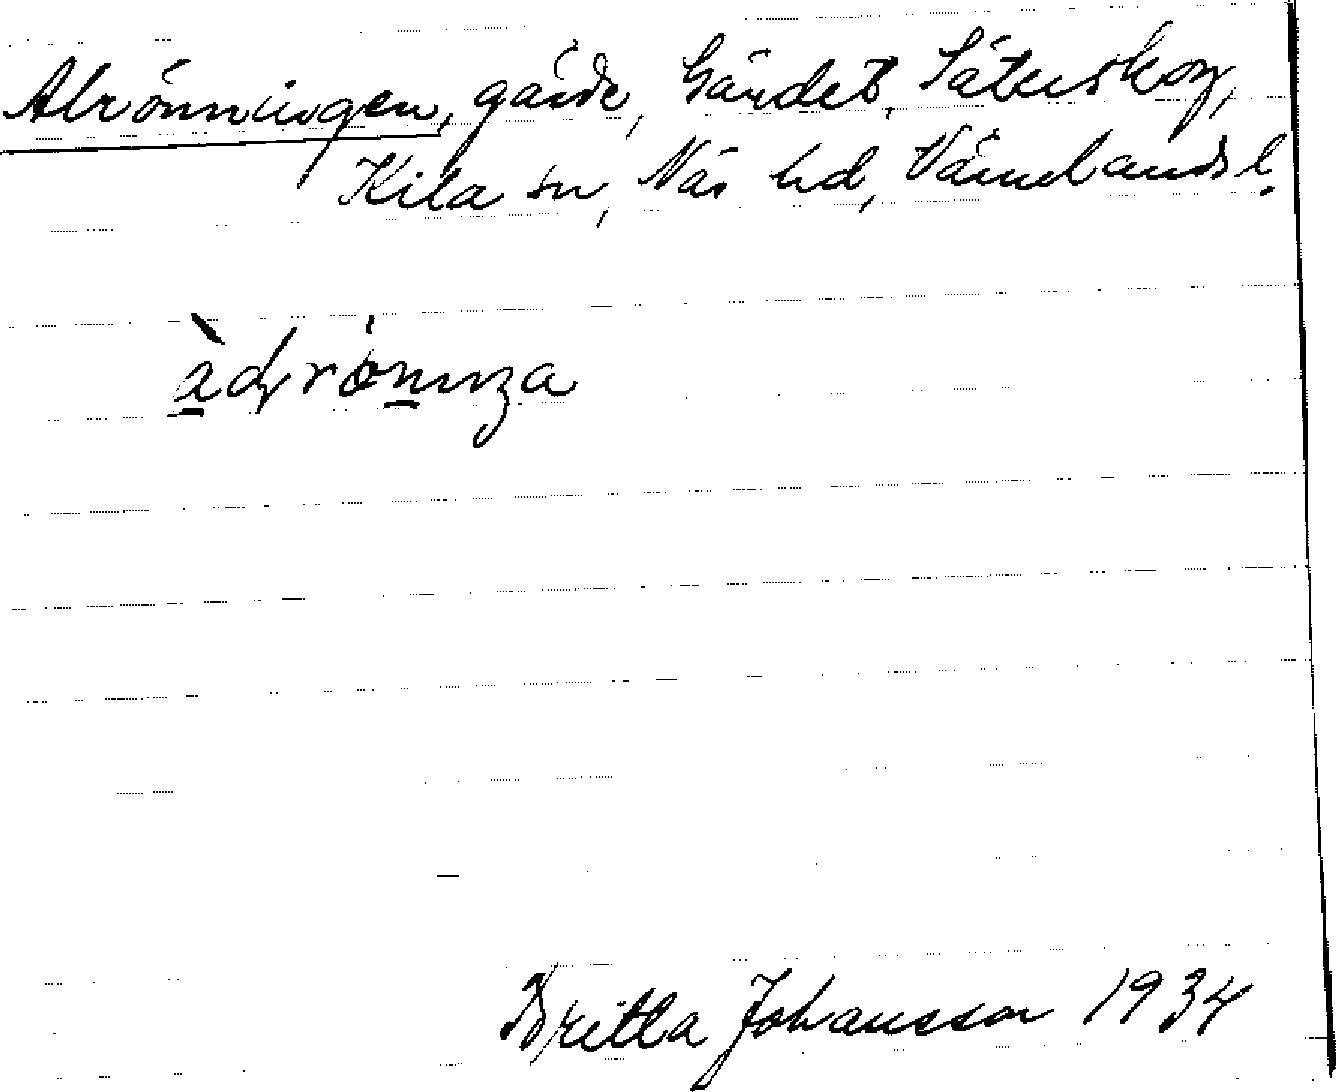 Alrönningen, gärde, Gärdet, Säterskog,
Kila sn, Näs hd, Värmlands l.
Britta Johansson 1934